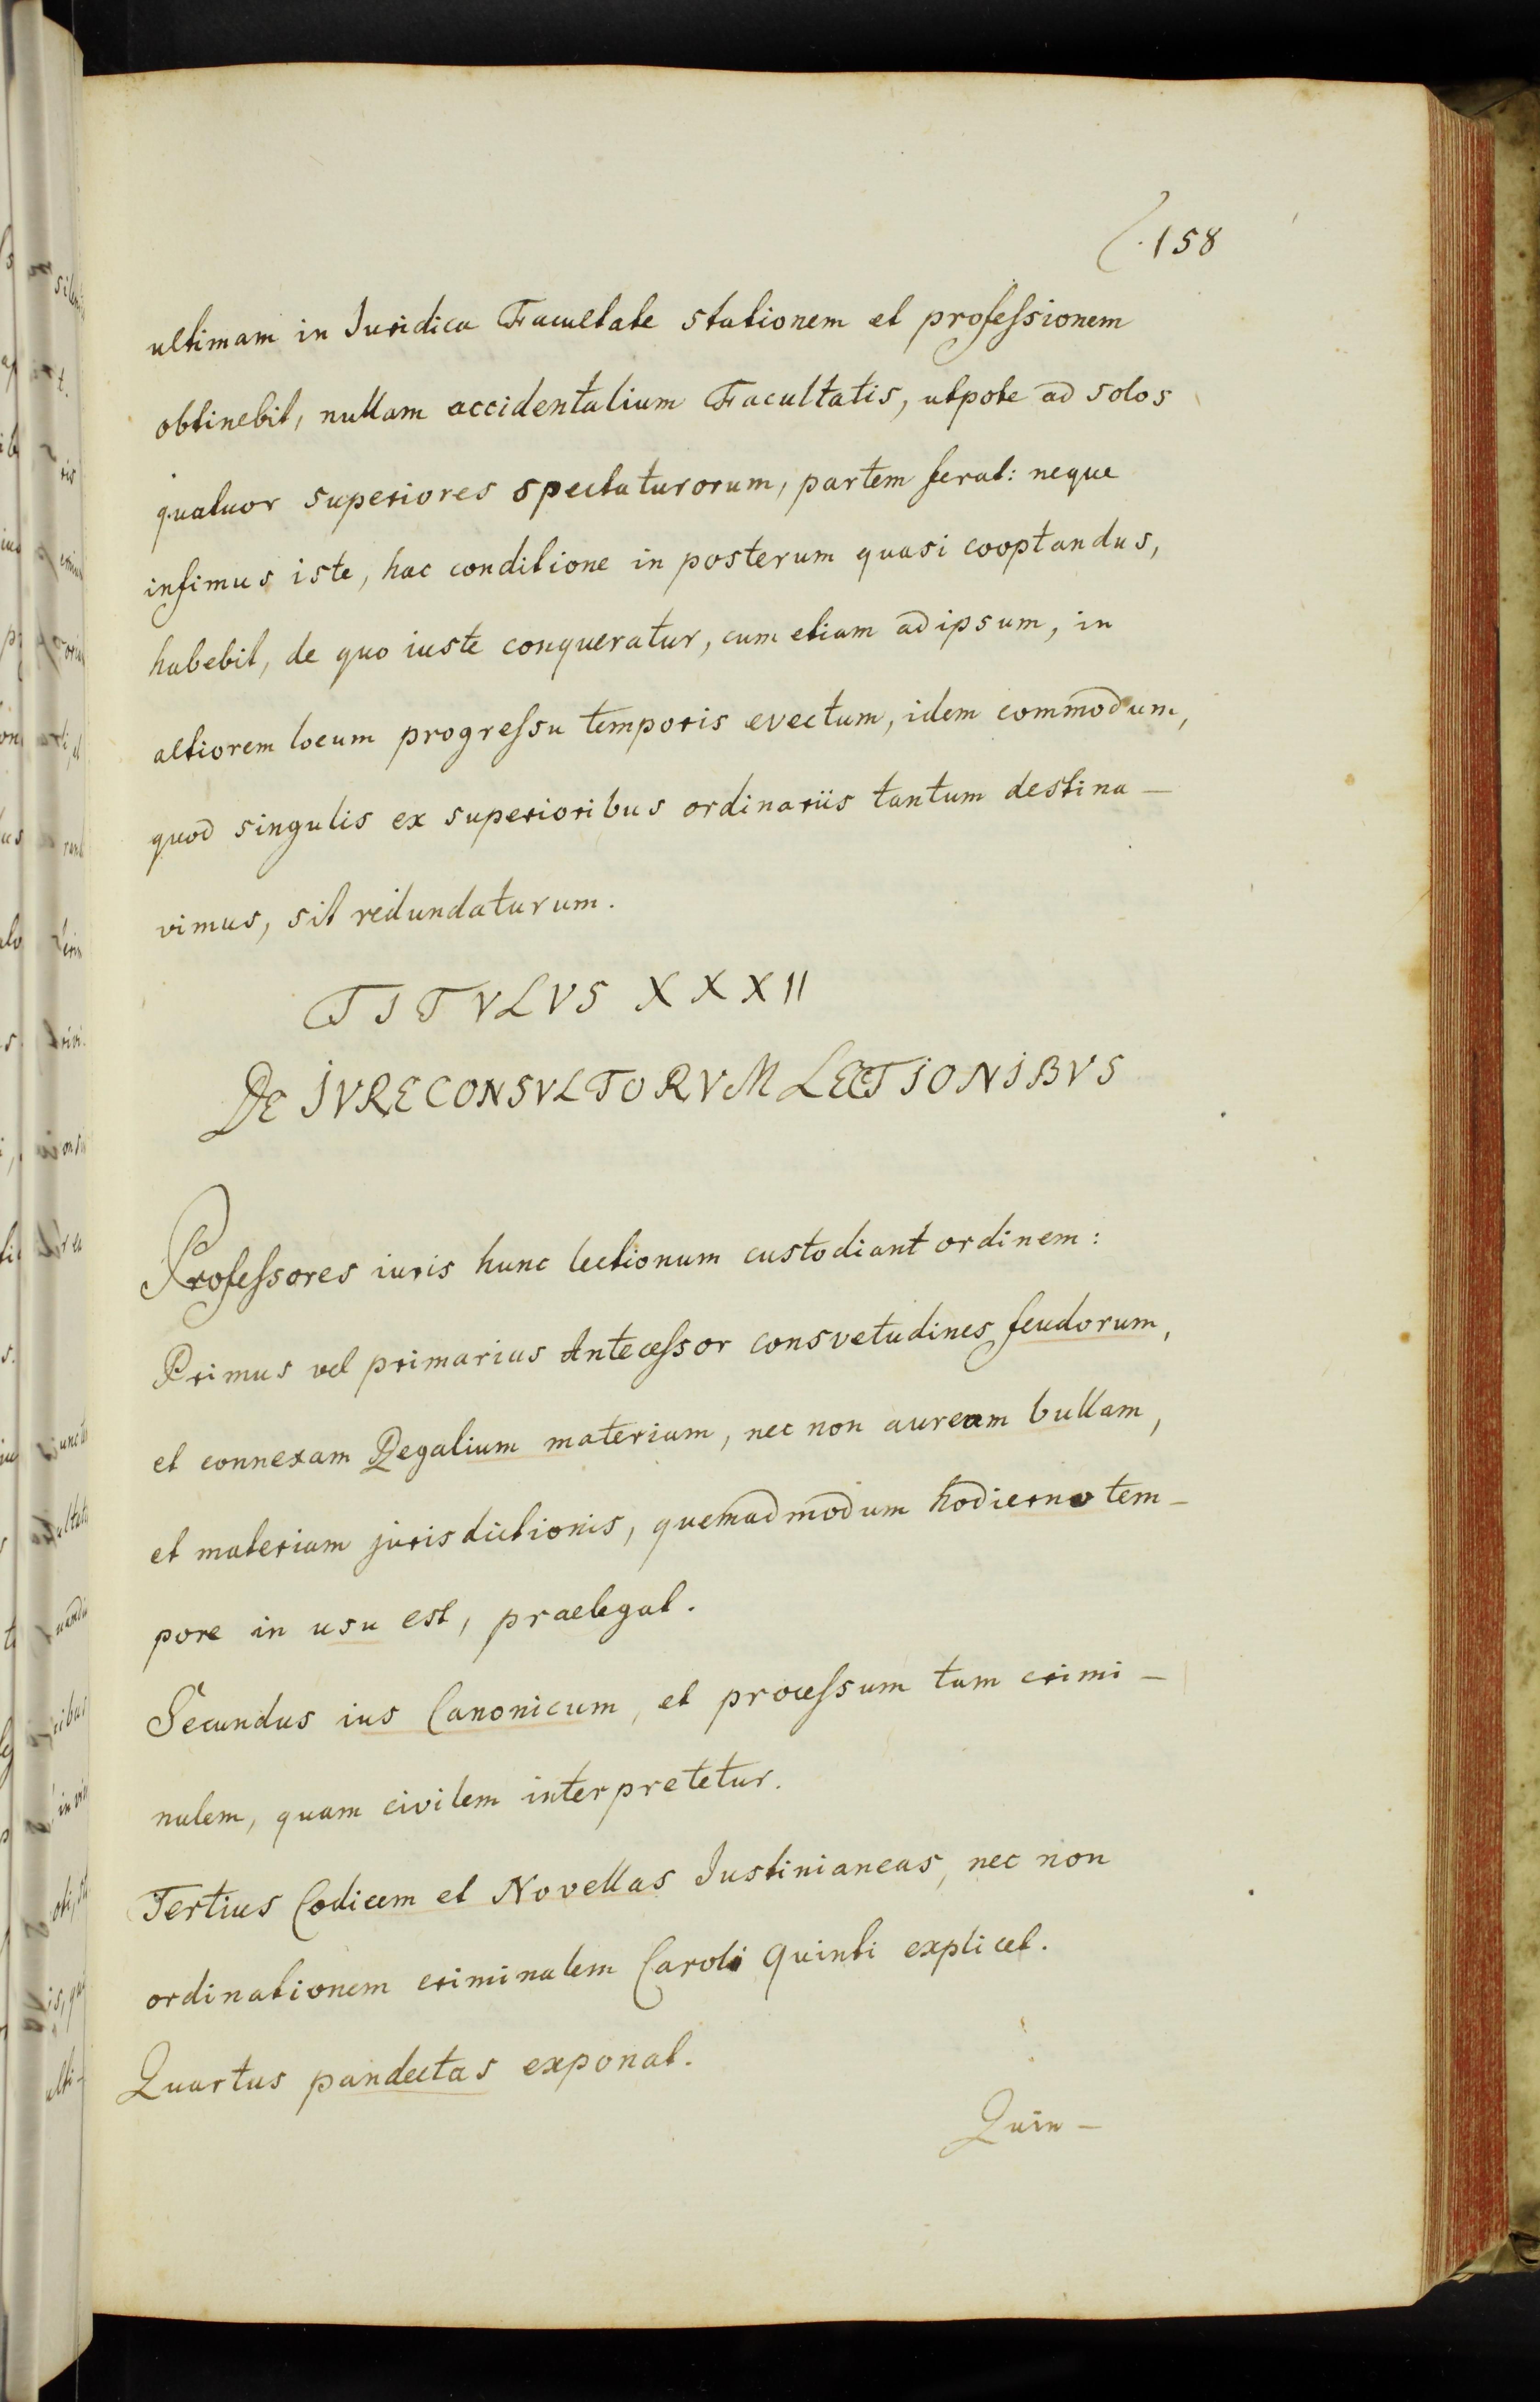 158
ultimam in Iuridica Facultate stationem et professionem
obtinebit, nullam accidentalium Facultatis, utpote ad solos
quatuor superiores spectaturorum, partem ferat: neque
infimus iste, hac conditione in posterum quasi cooptandus,
habebit, de quo iuste conqueratur, cum etiam ad ipsum, in
altiorem locum progressu temporis evectum, idem commodum,
quod singulis ex superioribus ordinariis tantum destina-
vimus, sit redundaturum.
TITVLVS XXXII
DE IVRECONSVLTORVM LECTIONIBVS
Professores iuris hunc lectionum custodiant ordinem:
Primus vel primarius Antecessor consvetudines feudorum,
et connexam Regalium materiam, nec non auream bullam,
et materiam jurisdictionis, quemadmodum hodierno tem-
pore in usu est, praelegat.
Secundus ius Canonicum, et processum tam crimi-
nalem, quam civilem interpretetur.
Tertius Codicem et Novellas Iustinianeas, nec non
ordinationem criminalem Caroli Quinti explicet.
Quartus pandectas exponat.
Quin-